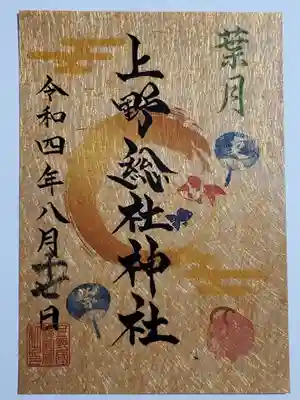 葉月
上野総社神社
令和四年八月廿七日